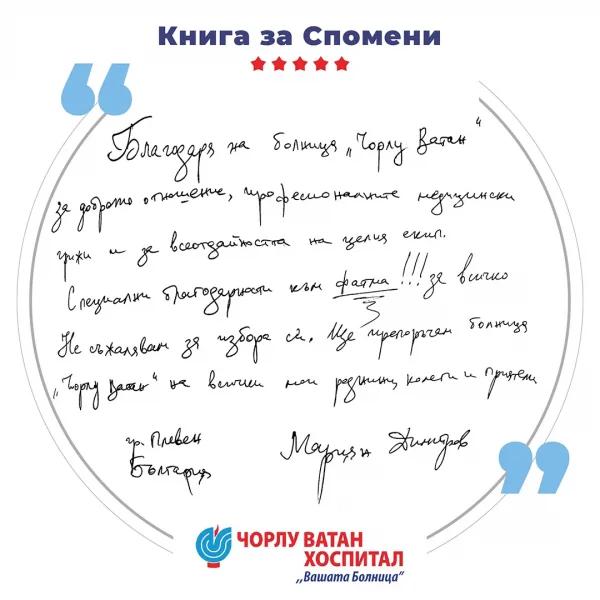 Книга за Спомени
Благодаря на болница „Чорлу Ватан“
за доброто отношение, професионалните медицински
грижи и за всеотдайността на целия екип.
Специални благодарности към фатма!!! за всичко
Не съжалявам за избора си. Ще препоръчам болница
„Чорлу Ватан“ на всички мои роднини, колеги и приятели
гр. Плевен
България
Мариян Димитров
ЧОРЛУ ВАТАН
ХОСПИТАЛ
,,Вашата Болница“